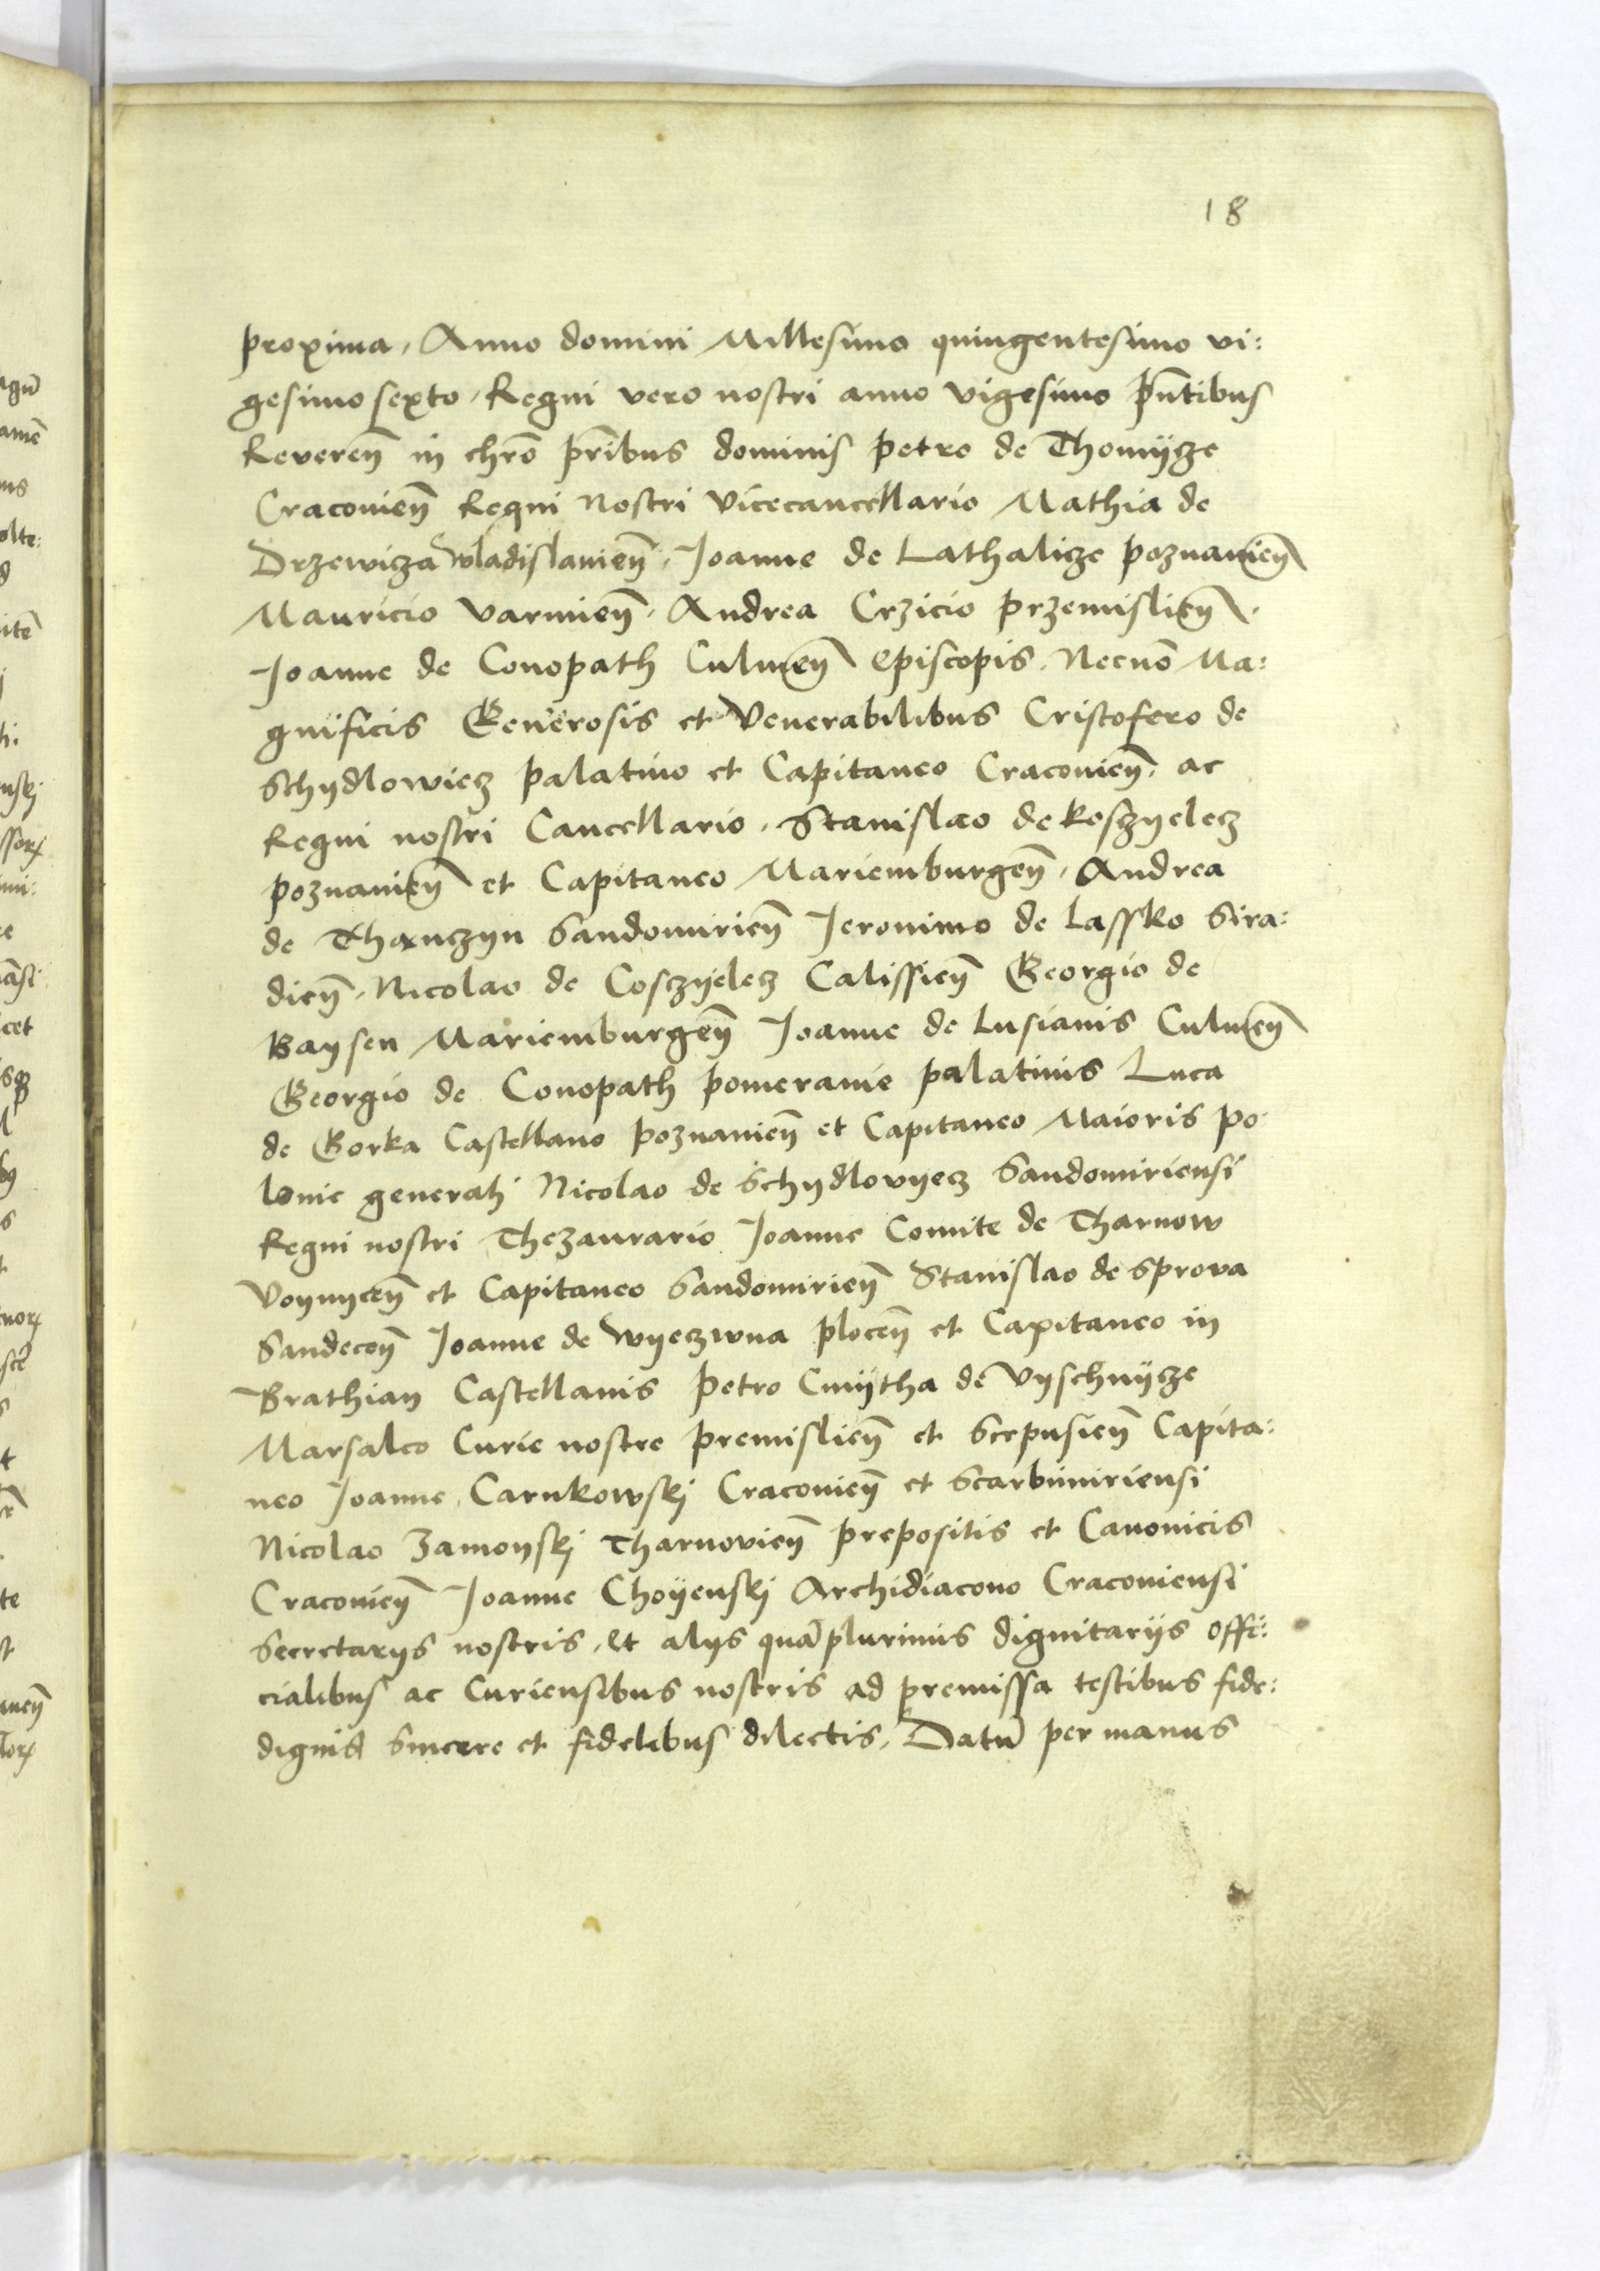 18
proxima, Anno domini Millesimo quingentesimo vi:
gesimo sexto, Regni vero nostri anno vigesimo pñtibus
Reveren̄ in chr̄o pr̄ibus dominis petro de Thomijcze
Craconien̄ Regni Nostri Vicecancellario Mathia de
Drzewicza Wladislauien̄, Joanne de Lathalicze poznanien̄
Mauricio varmien̄, Andrea Crzicio przemislien̄,
Joanne de Conopath Culmen̄ Episcopis, Necnō Ma:
gnificis Generosis et Venerabilibus Cristofero de
Schydlowiecz palatino et Capitaneo Craconien̄, ac
Regni nostri Cancellario, Stanislao de Koszyelecz
poznanien̄ et Capitaneo Mariemburgen̄, Andrea
de Thanczyn Sandomirien̄ Jeronimo de Lassko Sira:
dien̄, Nicolao de Cosczijelecz Calissien̄ Georgio de
Baysen Mariemburgen̄ Joanne de Lusianis Culmen̄
Georgio de Conopath pomeranie palatinis Luca
de Gorka Castellano poznanien̄ et Capitaneo Maioris po
lonie generali Nicolao de Schydlovyecz Sandomiriensi
Regni nostri Thezaurario Joanne Comite de Tharnow
Voynycen̄ et Capitaneo Sandomirien̄ Stanislao de Sprova
Sandecen̄ Joanne de Wyeczwna plocen̄ et Capitaneo in
Brathian Castellanis petro Cmijtha de Vyschnijcze
Marsalco Curie nostre premislien̄ et Scepusien̄ Capita:
neo Joanne Carnkowskj Craconien̄ et Scarbimiriensi
Nicolao Zamoyskj Tharnovien̄ prepositis et Canonicis
Craconien̄ Joanne Choijenskj Archidiacono Craconiensi
Secretarijs nostris, et alijs quāplurimis dignitarijs offi:
cialibus ac Curiensibus nostris ad premissa testibus fide:
dignis Sincere et fidelibus dilectis, Datū per manus